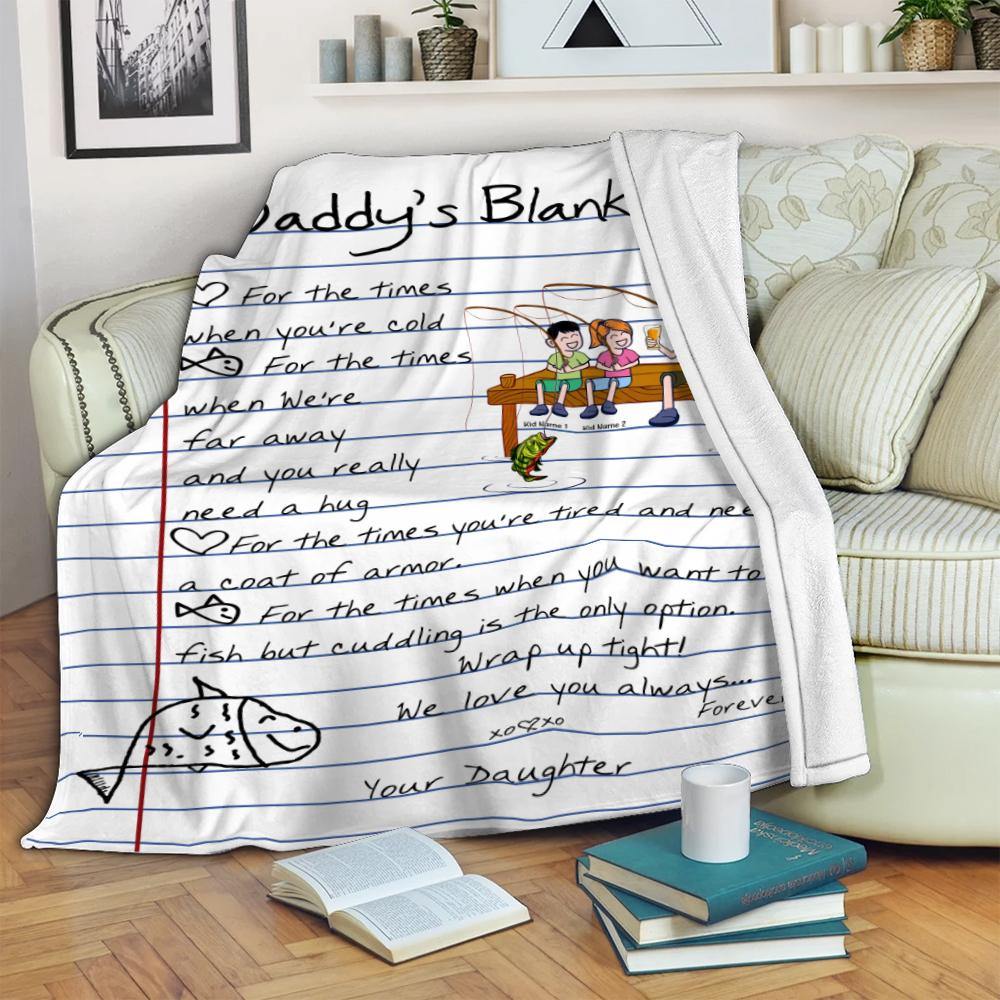 Daddy's Blank
For the times
when you're cold
For the times
when We're
far away
and you really
need a hug
Kid Name 1 Kid Name 2
For the times you're tired and nee
a coat of armor.
For the times when you want to
fish but cuddling is the only option.
Wrap up tight!
We love you always...
Forever
xo xo
Your Daughter
Medicinska
enciklopedija